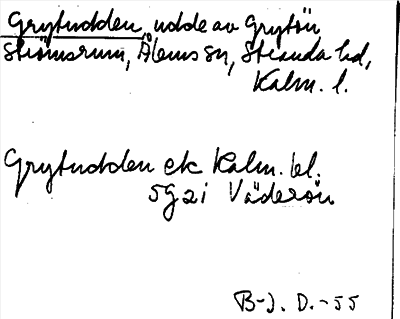 Grytudden, udde av Grytön,
Strömsrum, Ålems sn, Stranda hd,
Kalm. l.
Grytudden ek Kalm. bl.
5g2i Väderön
B-J. D.-55